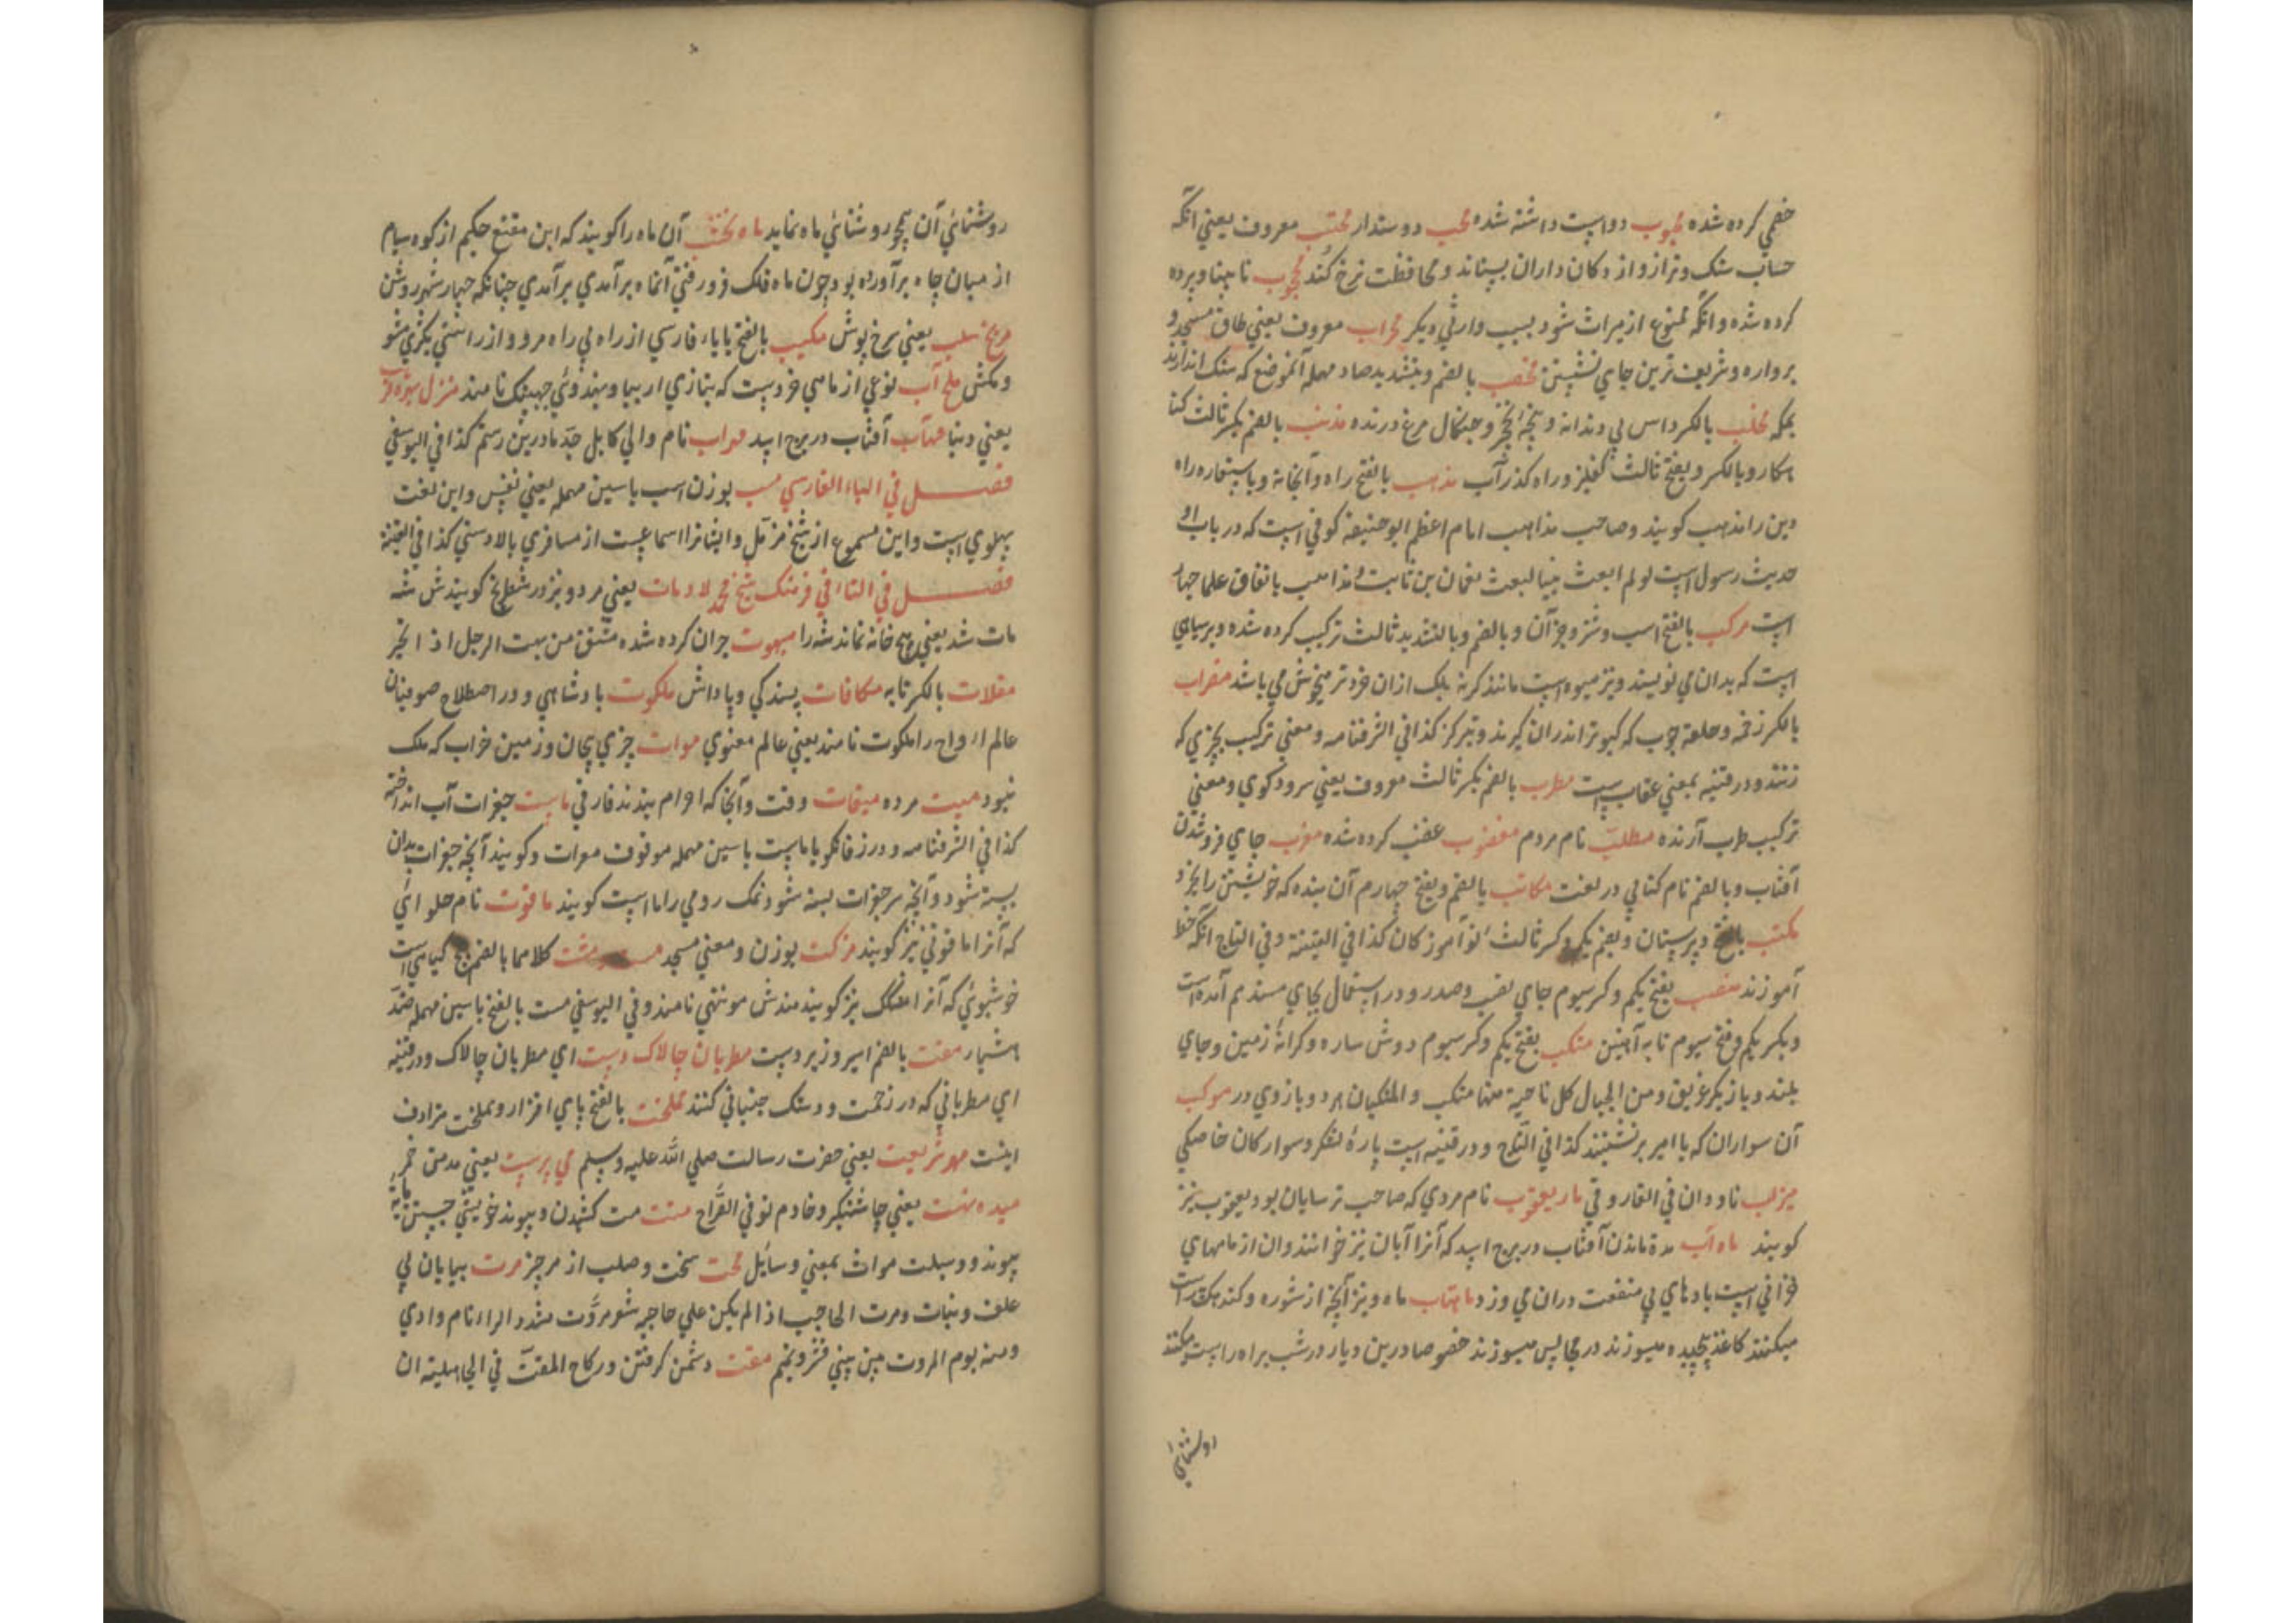 خصی کرده شده محبوب دواست داشته شده محب دوستدار محتسب معروف یعنی آنکه
حساب سنک و ترازو از دکان داران بستاند و محافظت نرخ کند محجوب نابینا و پرده
کرده شده و آنکه ممنوع از میراث شود بسبب وارثی دیکر محراب معروف یعنی طاق مسجد و
برواره و شریف ترین جای نشستن محصب بالضم و بتشدید صاد مهمله آنموضع که سنک اندازند
بمکه مخلب بالکسر داس بی دندانه و پنجه و چنکال مرغ درنده مذنب بالضم بکسر ثالث کنا
هکار و بالکسر و بفتح ثالث کفلیز و راه کذر آب مذهب بالفتح راه و آبخانه و باستعاره راه
دین را مذهب کویند و صاحب مذاهب امام اعظم ابوحنیفه کوفی است که در باب او
حدیث رسول است لو لم ابعث نبیا لبعث نعمان بن ثابت و مذاهب باتفاق علما چهار
است مرکب بالفتح اسب و شتر و جز آن و بالضم و بالتشدید ثالث ترکیب کرده شده و بر سیاهی
است که بدان می نویسند و نیز میوه است مانند کرنه بلک ازان خردتر میخوش می باشد مضراب
بالکسر زخمه و حلقه چوب که کبوتر اندران کیرند و بترکز کذا فی الشرفنامه و معنی ترکیب چیزی که
زنند و در قنیه بمعنی عقاب است مطرب بالضم بکسر ثالث معروف یعنی سرود کوی و معنی
ترکیب طرب آرنده مطلب نام مردم مغضوب غضب کرده شده مغرب جای فروشدن
آفتاب و بالضم نام کتابی در لغت مکاتب بالضم و بفتح چهارم آن بنده که خویشتن را بخرد
مکتب بالفتح دبیرستان و بضم یکم و کسر ثالث نوآموز کان کذا فی القنیة و فی التاج آنکه خط
آموزند منصب بفتح یکم و کسر سیوم جای نصب و صدر و در استعمال بجای مسند هم آمده است
و بکسر یکم و فتح سیوم تابه آهنین منکب بفتح یکم و کسر سیوم دوش ساره و کرانه زمین و جای
بلند و بازیکر عریق و من الجبال کل ناحیة منها منکب و المنکبان هر دو بازوی در موکب
آن سواران که با امیر برنشینند کذا فی التاج و در قنیه است پاره لشکر و سوارکان خاصکی
میزاب ناودان فی الفاروقی مار یعقوب نام مردی که صاحب ترسایان بود و یعقوب نیز
کویند ماه آب مدة ماندن آفتاب در برج اسد که آنرا آبان نیز خوانند و ان از ماههای
خزانی است بادهای بی منفعت دران می وزد ماهتاب ماه و نیز آنچه از شوره و کندهک راست
میکنند کاغذ پیچیده میسوزند در مجالس میسوزند خصوصا درین دیار در شب براه راست میکنند
روشنائی
روشنائی آن همچو روشنائی ماه نماید ماه نخشب آن ماه را کویند که ابن مقنع حکیم از کوه سیام
از میان چاه برآورده بود چون ماه فلک فرو رفتی آنماه برآمدی برآمدی چنانکه چهار شهر روشن
مریخ سلب یعنی سرخ پوش مکیب بالفتح با یاء فارسی از راه بی راه مرو و از راستی بکژی مشو
و مکش ملح آب نوعی از ماهی خردست که بتازی اربیا و بهندوئی جهینک نامند منزل سفره قرب
یعنی دنیا مهتاب آفتاب در برج اسد مهراب نام والی کابل جد مادرین رستم کذا فی الیوسفی
فصل فی الباء الفارسی مسب بوزن اسب باسین مهمله یعنی نفس و این لغت
پهلوی است و این مسموع از شیخ مزمل و ایشانرا سماعیست از مسافری بالادستی کذا فی القنیة
فصل فی التا فی فرهنک شیخ محمد لاد مات یعنی مرد و نیز در شطرنج کویند شش شه
مات شد یعنی هیچ خانه نماند شه را مبهوت حران کرده شده مشتق من بهت الرجل اذا تحیر
مقلات بالکسر تابه مکافات پسندکی و پاداش ملکوت بادشاهی و در اصطلاح صوفیان
عالم ارواح را ملکوت نامند یعنی عالم معنوی موات چیزی بیجان و زمین خراب که ملک
نبود میت مرده میقات وقت و آنجا که احرام بندند فارفی ماست جغرات آب انداخته
کذا فی الشرفنامه و در زفانکویا ماست باسین مهمله موقوف معرات و کویند آنچه جغرات بدان
بسته شود و آنچه سر جغرات بسته شود نمک رومی را ماست کویند ماقوت نام حلوائی
که آنرا ماقوتی نیز کویند مزکت بوزن و معنی مسجد کلاهما بالضم کیاهی است
خوشبوئی که آنرا مشکک نیز کویند مندش مونتهی نامند و فی الیوسفی مست بالفتح باسین مهمله ضد
هشیار مغت بالضم امیر و زبردست مطربان چالاک دست ای مطربان چالاک و در قنیه
ای مطربانی که در زحمت و دستک جنبانی کنند ململخت بالفتح پای افزار و مملخت مرادف
اینست مهر شریعت یعنی حضرت رسالت صلی الله علیه و سلم می پرست یعنی مدمن خمر
میده منت یعنی چاشنیکر و خادم نو فی القراح متت مت کشیدن و پیوند خویشی جستن
پیوند و وسیلت مواث بمعنی وسائل محت سخت و صلب از هر چیز مرت بیابان بی
علف و نبات و مرت الحاجب اذا لم یکن علی حاجبه شعر مروت مشدد الراء نام وادی
ومنه یوم المروت بین بنی قشیر و تمیم مقت دشمن کرفتن و رکاح المقت فی الجاهلیة ان